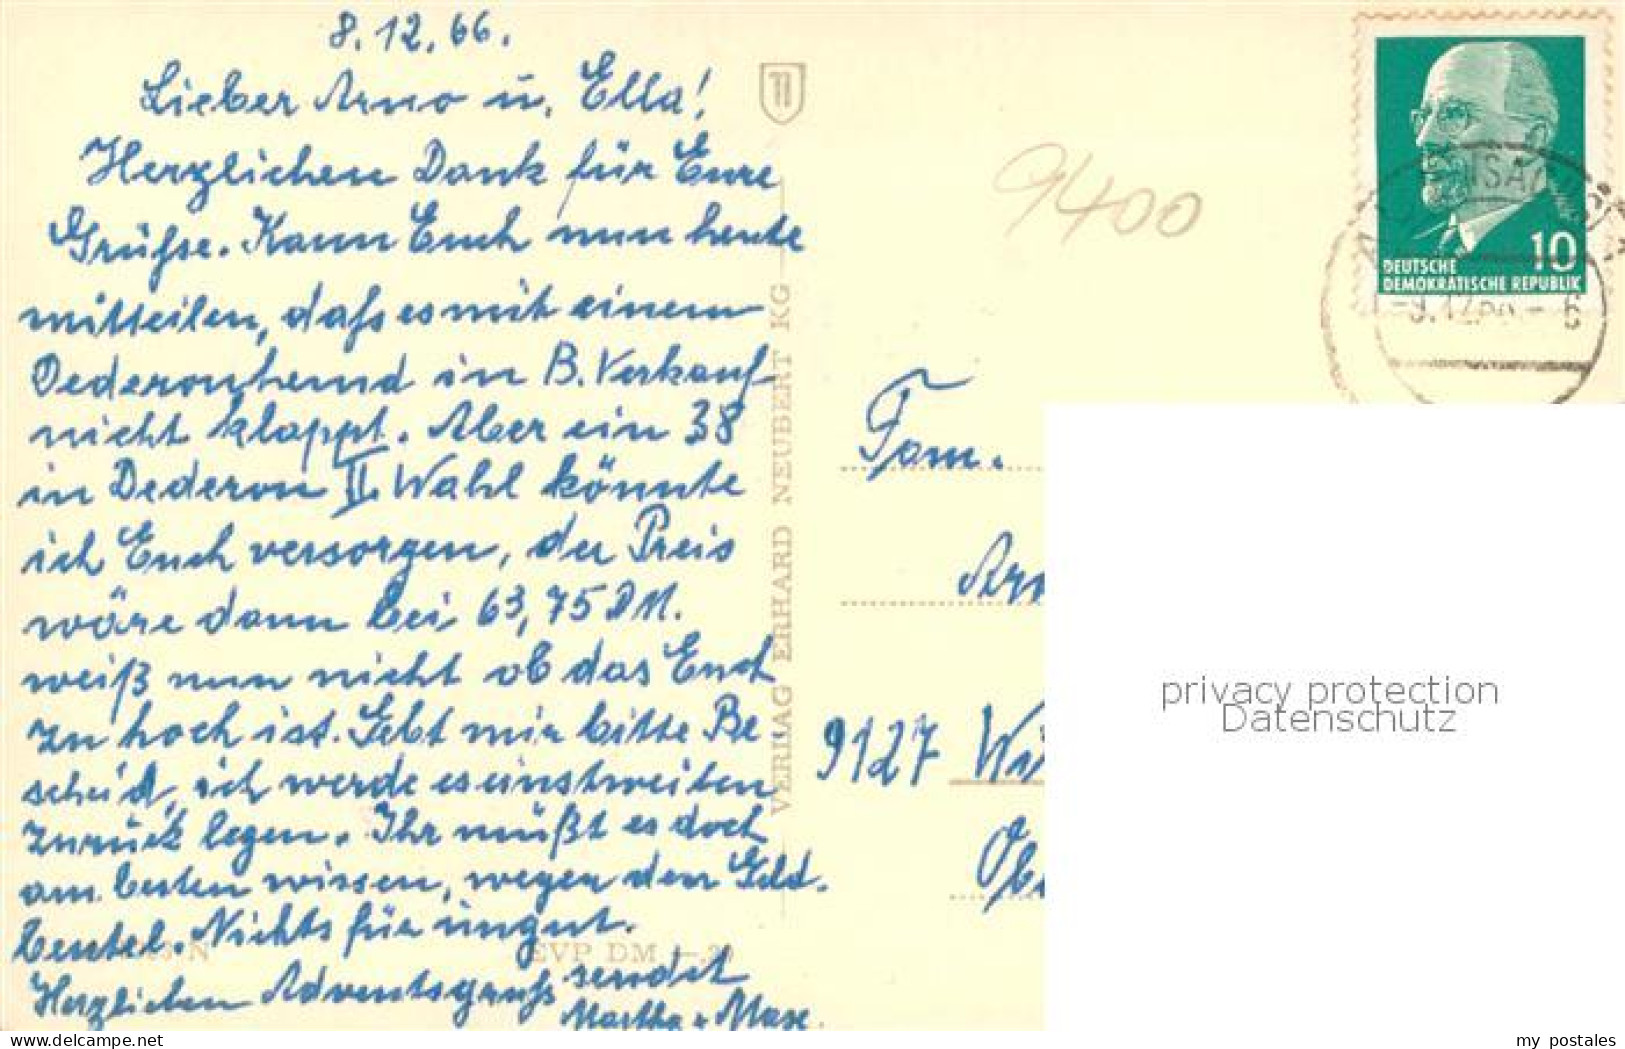 8.12.66.
Lieber Arno u. Ella!
Herzlichen Dank für Eure
Grüße. Kann Euch nun heute
mitteilen, daß es mit einem
Dederonhemd in B. Verkauf
nicht klappt. Aber ein 38
in Dederon II. Wahl könnte
ich Euch versorgen, der Preis
wäre dann bei 63,75 DM.
weiß nun nicht ob das Euch
zu hoch ist. Gebt mir bitte Be
scheid, ich werde es einstweilen
zurück legen. Ihr müßt es doch
am besten wissen, wegen den Geld.
beutel. Nichts für ungut.
Herzlichen Adventsgruß sendet
Martha u. Maxe.
EVP DM —,20
VERLAG ERHARD NEUBERT KG
9400
10
DEUTSCHE
DEMOKRATISCHE REPUBLIK
-9.12.66-6
Fam.
Arn
9127 Wi
Ob
privacy protection
Datenschutz
delcampe.net
my_postales